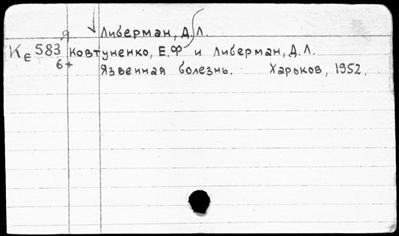 Либерман, Д. Л.
Ке 583 Ковтуненко, Е.Ф. и Либерман, Д. Л.
6+ Язвенная болезнь. Харьков, 1952.